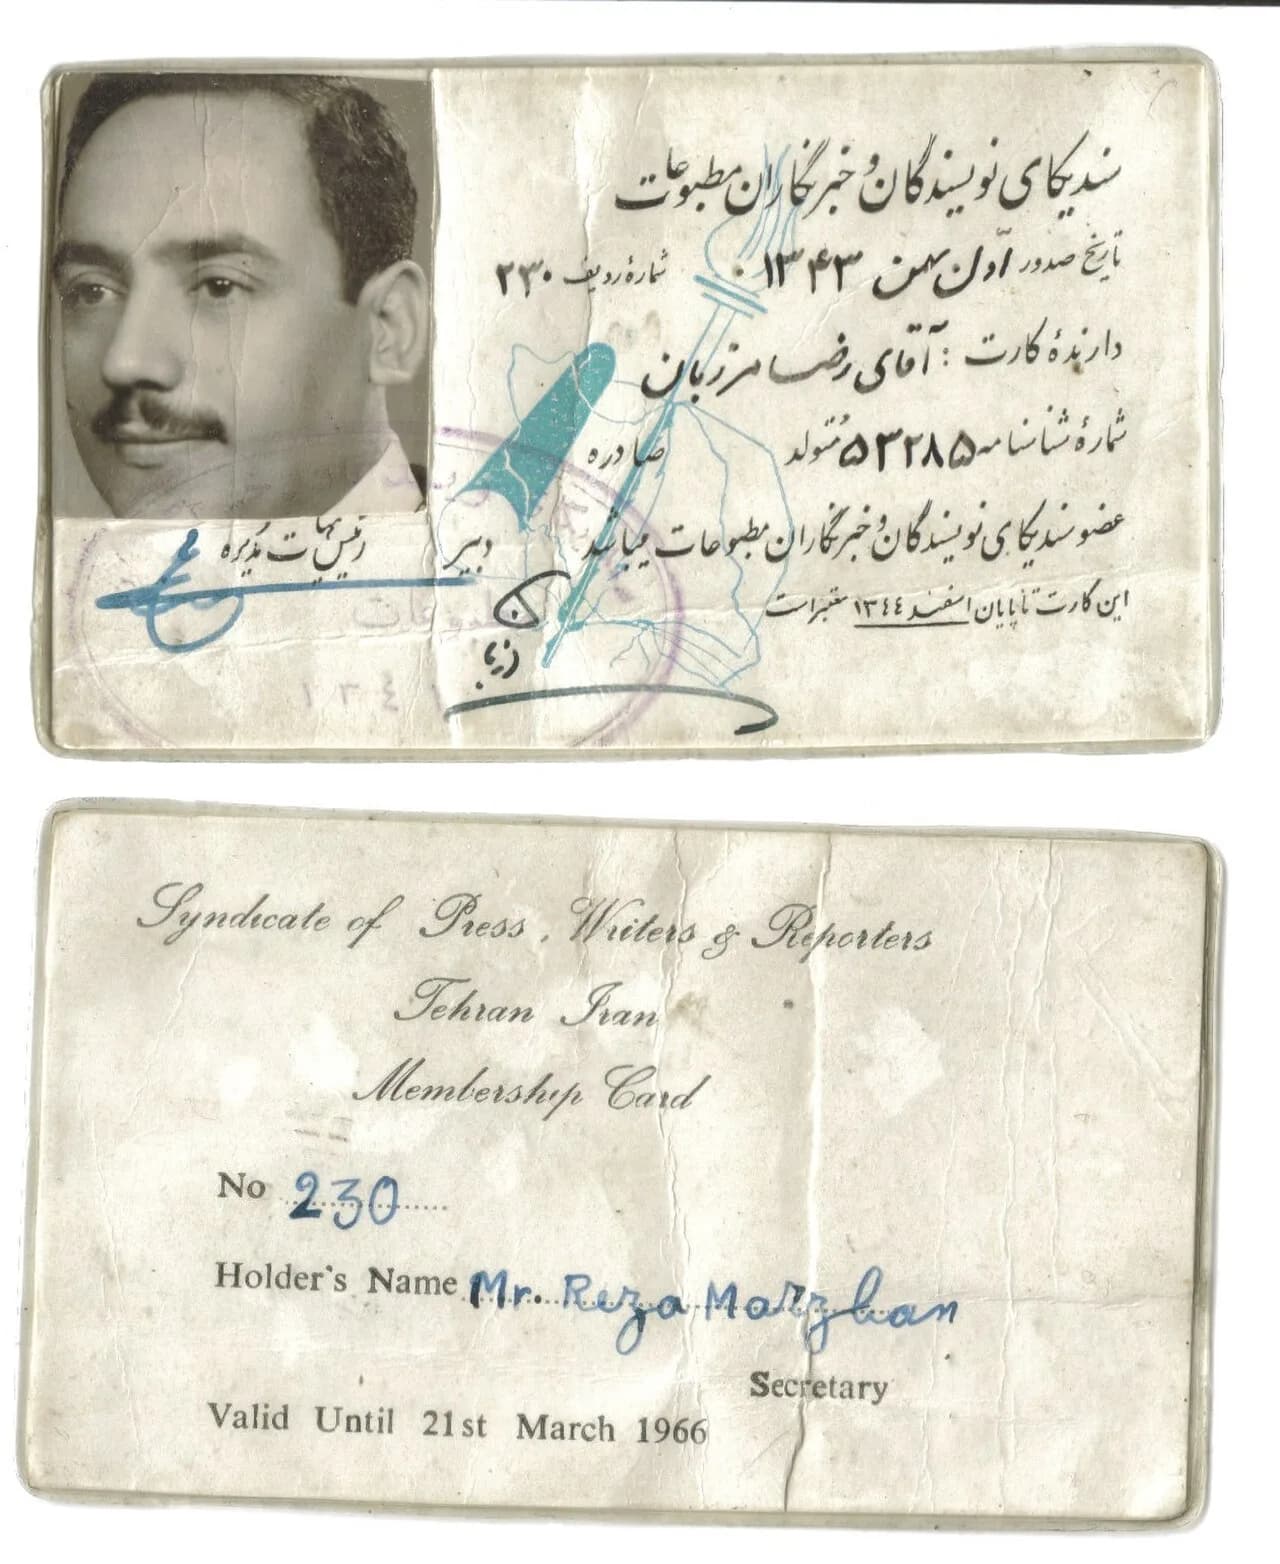 سندیکای نویسندگان و خبرنگاران مطبوعات
تاریخ صدور اوّل بهمن ۱۳۴۳ شمارهٔ ردیف ۲۳۰
دارندهٔ کارت : آقای رضا مرزبان
شمارهٔ شناسنامه ۵۳۲۸۵ مُتولد صادره
عضو سندیکای نویسندگان و خبرنگاران مطبوعات میباشد
دبیر رئیس هیأت مدیره
این کارت تا پایان اسفند ۱۳٤٤ معتبر است
Syndicate of Press, Writers & Reporters
Tehran Iran
Membership Card
No 230
Holder's Name Mr. Reza Marzban
Secretary
Valid Until 21st March 1966